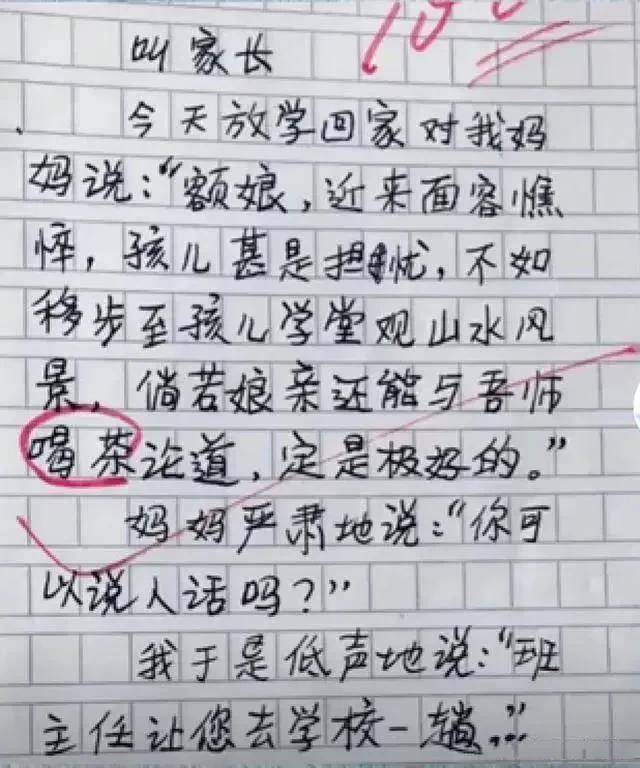 100
叫家长
今天放学回家对我妈
妈说：“额娘，近来面容憔
悴，孩儿甚是担忧，不如
移步至孩儿学堂观山水风
景，倘若娘亲还能与吾师
喝茶论道，定是极好的。”
妈妈严肃地说：“你可
以说人话吗？”
我于是低声地说：“班
主任让您去学校一趟。”